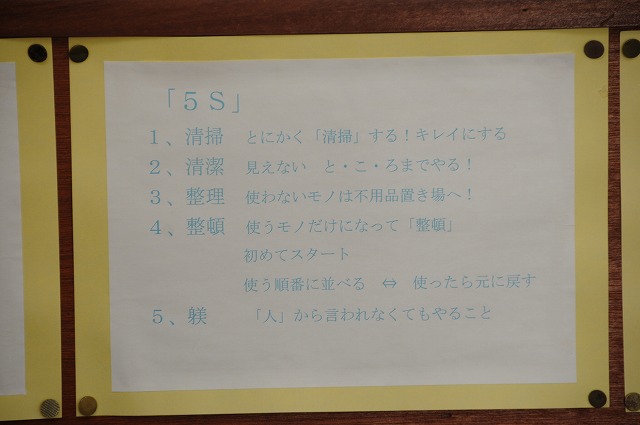 「５Ｓ」
１、清掃　とにかく「清掃」する！キレイにする
２、清潔　見えない　と・こ・ろまでやる！
３、整理　使わないモノは不用品置き場へ！
４、整頓　使うモノだけになって「整頓」
初めてスタート
使う順番に並べる　⇔　使ったら元に戻す
５、躾　「人」から言われなくてもやること